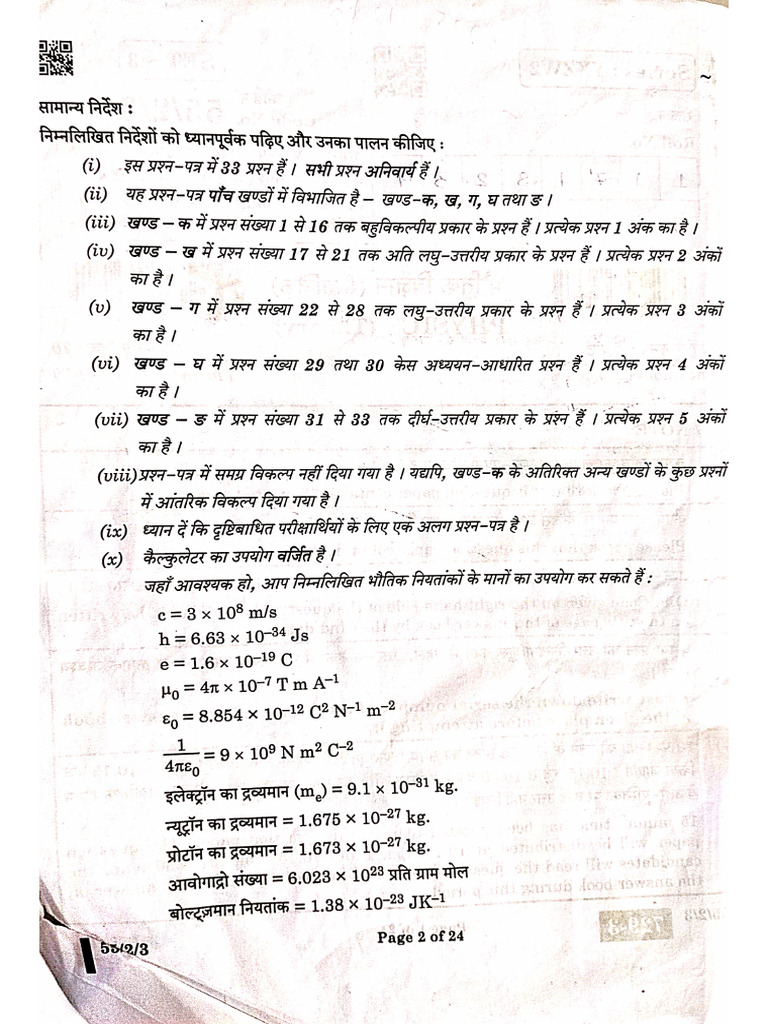 ~
सामान्य निर्देश :
निम्नलिखित निर्देशों को ध्यानपूर्वक पढ़िए और उनका पालन कीजिए :
(i) इस प्रश्न-पत्र में 33 प्रश्न हैं । सभी प्रश्न अनिवार्य हैं ।
(ii) यह प्रश्न-पत्र पाँच खण्डों में विभाजित है – खण्ड-क, ख, ग, घ तथा ङ ।
(iii) खण्ड – क में प्रश्न संख्या 1 से 16 तक बहुविकल्पीय प्रकार के प्रश्न हैं । प्रत्येक प्रश्न 1 अंक का है ।
(iv) खण्ड – ख में प्रश्न संख्या 17 से 21 तक अति लघु-उत्तरीय प्रकार के प्रश्न हैं । प्रत्येक प्रश्न 2 अंकों
का है ।
(v) खण्ड – ग में प्रश्न संख्या 22 से 28 तक लघु-उत्तरीय प्रकार के प्रश्न हैं । प्रत्येक प्रश्न 3 अंकों
का है ।
(vi) खण्ड – घ में प्रश्न संख्या 29 तथा 30 केस अध्ययन-आधारित प्रश्न हैं । प्रत्येक प्रश्न 4 अंकों
का है ।
(vii) खण्ड – ङ में प्रश्न संख्या 31 से 33 तक दीर्घ-उत्तरीय प्रकार के प्रश्न हैं । प्रत्येक प्रश्न 5 अंकों
का है ।
(viii) प्रश्न-पत्र में समग्र विकल्प नहीं दिया गया है । यद्यपि, खण्ड-क के अतिरिक्त अन्य खण्डों के कुछ प्रश्नों
में आंतरिक विकल्प दिया गया है ।
(ix) ध्यान दें कि दृष्टिबाधित परीक्षार्थियों के लिए एक अलग प्रश्न-पत्र है ।
(x) कैल्कुलेटर का उपयोग वर्जित है ।
जहाँ आवश्यक हो, आप निम्नलिखित भौतिक नियतांकों के मानों का उपयोग कर सकते हैं :
c = 3 × 10⁸ m/s
h = 6.63 × 10⁻³⁴ Js
e = 1.6 × 10⁻¹⁹ C
μ₀ = 4π × 10⁻⁷ T m A⁻¹
ε₀ = 8.854 × 10⁻¹² C² N⁻¹ m⁻²
1/4πε₀ = 9 × 10⁹ N m² C⁻²
इलेक्ट्रॉन का द्रव्यमान (mₑ) = 9.1 × 10⁻³¹ kg.
न्यूट्रॉन का द्रव्यमान = 1.675 × 10⁻²⁷ kg.
प्रोटॉन का द्रव्यमान = 1.673 × 10⁻²⁷ kg.
आवोगाद्रो संख्या = 6.023 × 10²³ प्रति ग्राम मोल
बोल्ट्ज़मान नियतांक = 1.38 × 10⁻²³ JK⁻¹
55/2/3 Page 2 of 24